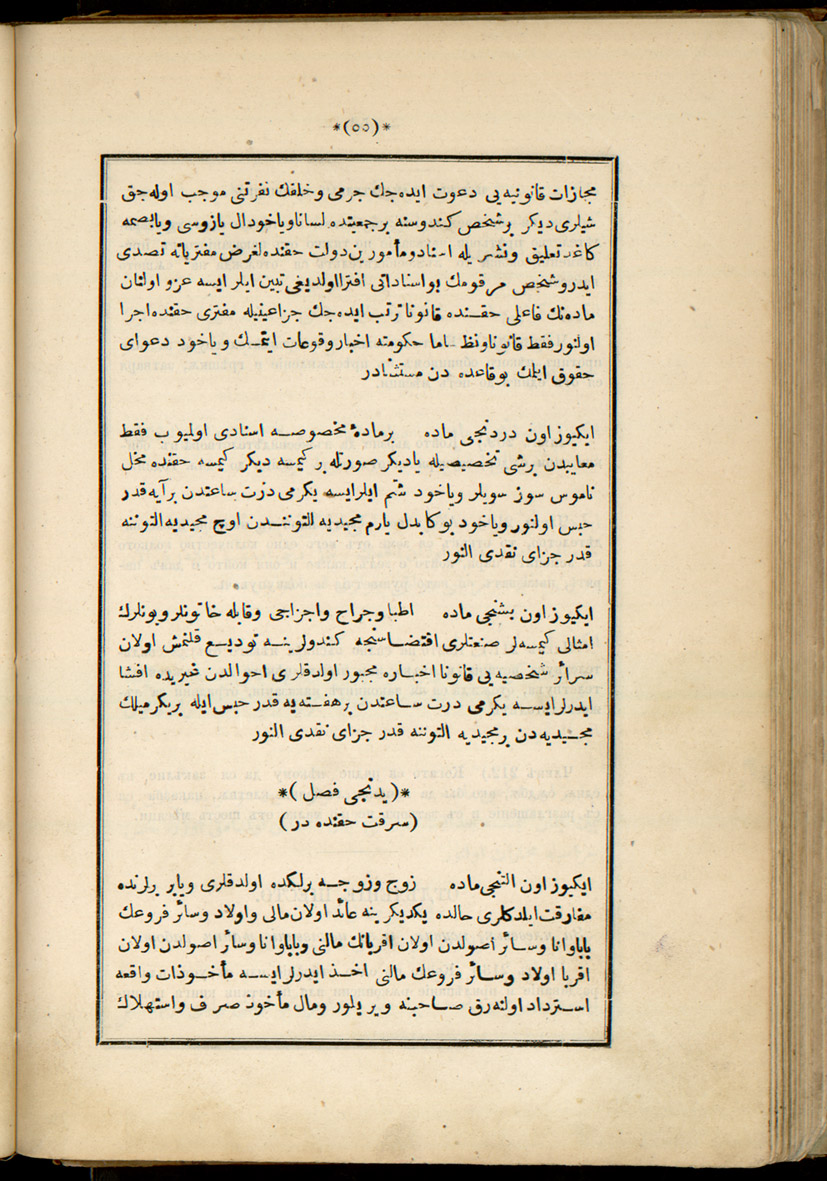 *(٥٥)*
مجازات قانونیه‌یی دعوت ایده‌جك جرمی وخلقك نفرتنی موجب اوله‌جق
شیلری دیكر برشخص كندوسنه برجمعیتده لسانا ویاخود ال یازوسی ویابصمه
كاغد تعلیق ونشریله اسناد ومأمورین دولت حقنده لغرض مفتریانه تصدی
ایدر وشخص مرقومك بواسناداتی افترا اولدیغی تبین ایلر ایسه عزو اولنان
ماده‌نك فاعلی حقنده قانونا ترتب ایده‌جك جزا عینیله مفتری حقنده اجرا
اولنور فقط قانونا ونظاما حكومته اخبار وقوعات ایتمك ویاخود دعوای
حقوق ایلمك بوقاعده دن مستثنادر
ایكیوز اون دردنجی ماده برمادهٔ مخصوصه اسنادی اولمیوب فقط
معایبدن برشی تخصیصیله یادیكر صورتله بر كیمسه دیكر كیمسه حقنده مخل
ناموس سوز سویلر ویاخود شتم ایلرایسه یكرمی درت ساعتدن برآیه قدر
حبس اولنور ویاخود بوكا بدل یارم مجیدیه التونندن اوچ مجیدیه التوننه
قدر جزای نقدی النور
ایكیوز اون بشنجی ماده اطبا وجراح واجزاجی وقابله خاتونلر وبونلرك
امثالی كیمسه‌لر صنعتلری اقتضاسنجه كندولرینه تودیع قلنمش اولان
سرائر شخصیه‌یی قانونا اخباره مجبور اولدقلری احوالدن غیریده افشا
ایدرلر ایسه یكرمی درت ساعتدن برهفته‌یه قدر حبس ایله بریكرمیلك
مجیدیه‌دن برمجیدیه التوننه قدر جزای نقدی النور
*(یدنجی فصل)*
(سرقت حقنده در)
ایكیوز اون التنجی ماده زوج وزوجه برلكده اولدقلری ویابر برلرنده
مفارقت ایلدكلری حالده یكدیكرینه عائد اولان مالی واولاد وسائر فروعك
بابا وانا وسائر اصولدن اولان اقربانك مالنی وبابا وانا وسائر اصولدن اولان
اقربا اولاد وسائر فروعك مالنی اخذ ایدرلر ایسه مأخوذات واقعه
استرداد اولنه‌رق صاحبنه ویریلور ومال مأخوذ صرف واستهلاك